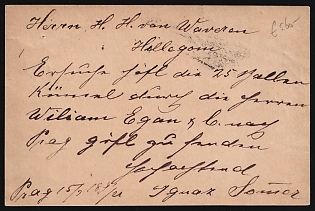 Herrn H. H. van Waveren
Hillegom
Ersuche höfl die 25 Ballen
Kümmel durch die Herren
William Egan & C. nach
Prag gefl zu senden
Hochachtend
Prag 15/9 Ignaz